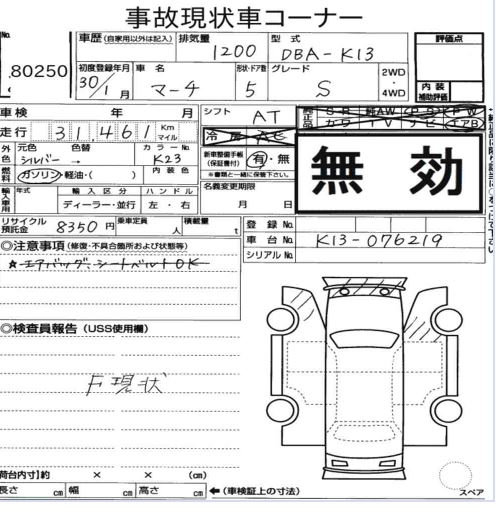 事故現状車コーナー
No.
80250
車歴 (自家用以外は記入) 排気量 1200 型式 DBA-K13
評価点
初度登録年月 30/1月 車名 マーチ 形状・ドア数 5 グレード S 2WD・4WD
内装補助評価
車検 年 月
シフト AT
純正品 SR 純AW PS PW
カワ TV ナビ エアB
走行 31,461 Km マイル
冷房 AC
外色 元色 シルバー 色替 → カラーNo. K23
新車整備手帳(保証書付) 有・無
※書類と一緒に保管下さい。
無効
燃料 ガソリン・軽油・( ) 内装色
名義変更期限
月 日
輸入車用 年式 輸入区分 ハンドル
ディーラー・並行 左・右
リサイクル預託金 8350円 乗車定員 人 積載量 t
登録No.
車台No. K13-076219
シリアルNo.
◎注意事項 (修復・不具合箇所および状態等)
☆エアバッグ、シートベルトOK
◎検査員報告 (USS使用欄)
F現状
荷台内寸)約 × × (cm)
長さ cm 幅 cm 高さ cm ←(車検証上の寸法)
スペア